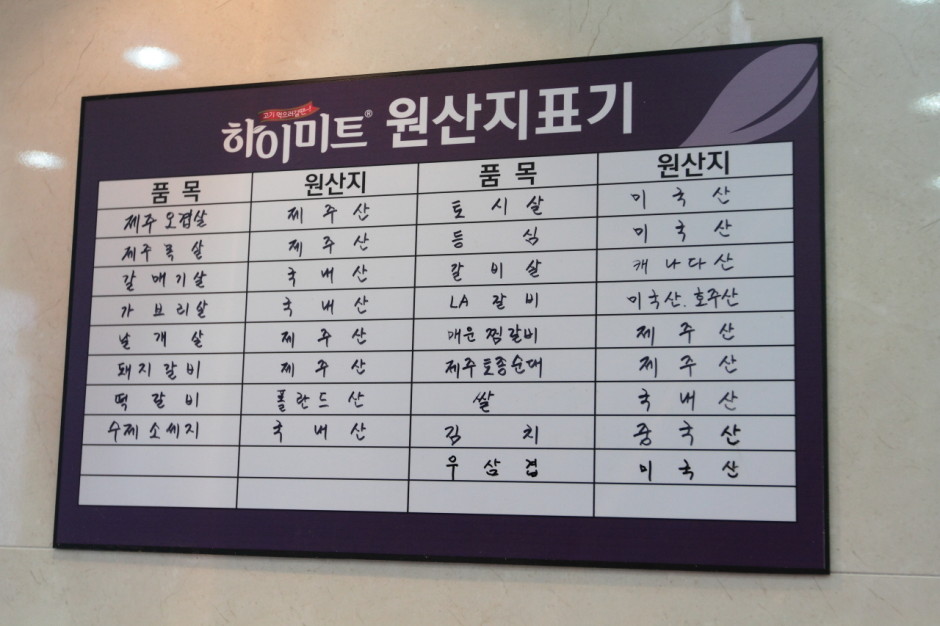 고기 먹으러갈땐~!
하이미트® 원산지표기
품 목 원산지 품 목 원산지
제주 오겹살 제 주 산 토 시 살 미 국 산
제주 목 살 제 주 산 등 심 미 국 산
갈 매 기 살 국 내 산 갈 비 살 캐 나 다 산
가 브 리 살 국 내 산 LA 갈 비 미국산. 호주산
날 개 살 제 주 산 매운 찜갈비 제 주 산
돼 지 갈 비 제 주 산 제주토종순대 제 주 산
떡 갈 비 폴 란 드 산 쌀 국 내 산
수제 소 세 지 국 내 산 김 치 중 국 산
우 삼 겹 미 국 산